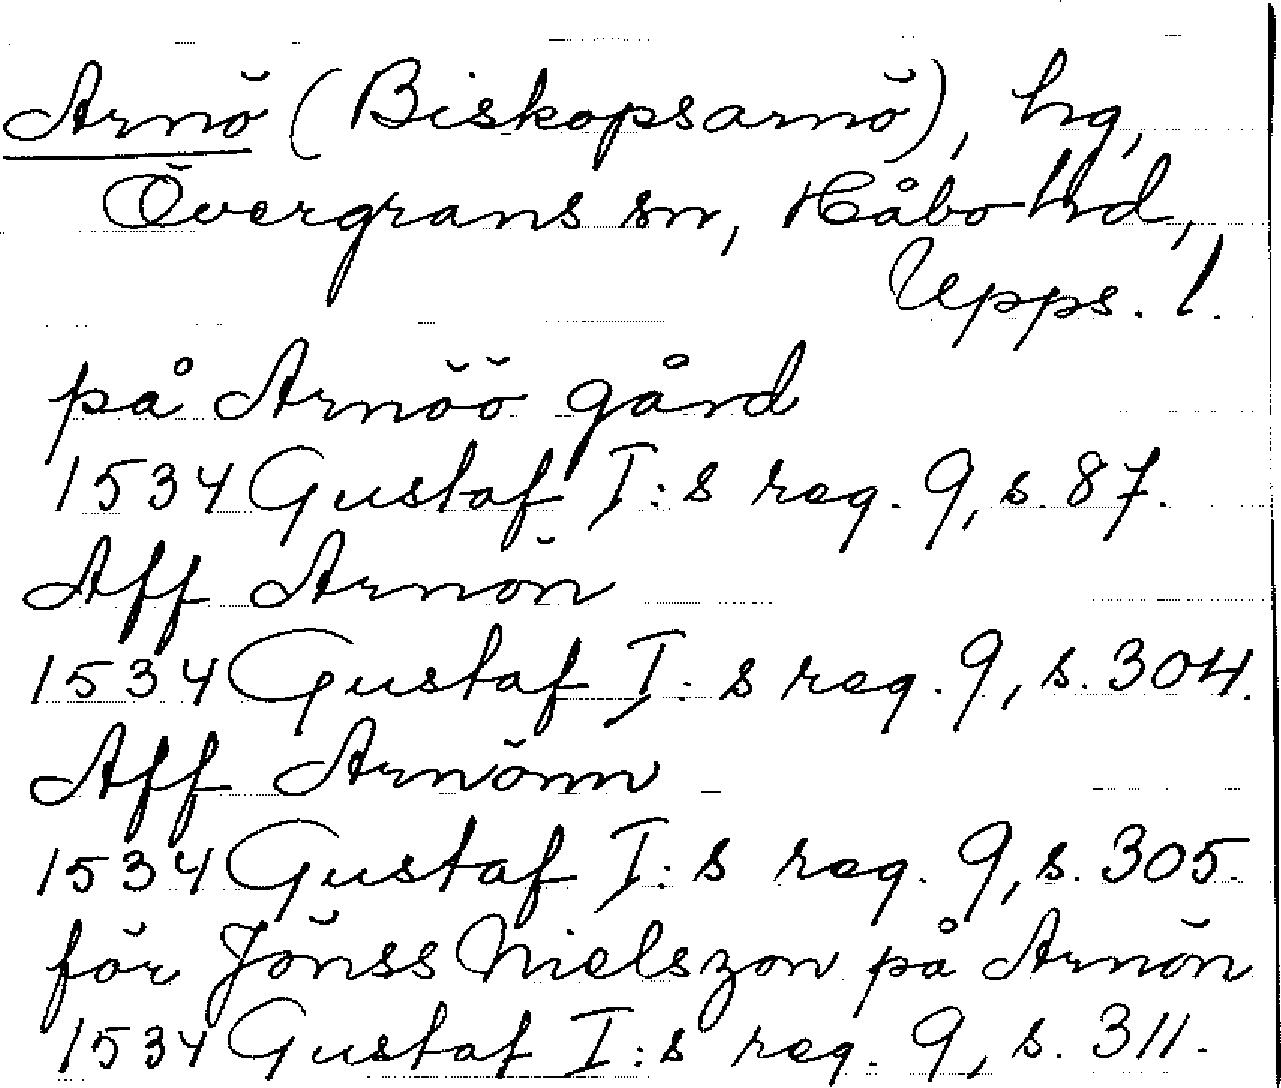 Arnö (Biskopsarnö), hg,
Övergrans sn, Håbo hd,
Upps. l.
på Arnöö gård
1534 Gustaf I:s reg. 9, s. 87.
Aff Arnön
1534 Gustaf I:s reg. 9, s. 304.
Aff Arnönn
1534 Gustaf I:s reg. 9, s. 305.
för Jönss Nielszon på Arnön
1534 Gustaf I:s reg. 9, s. 311.